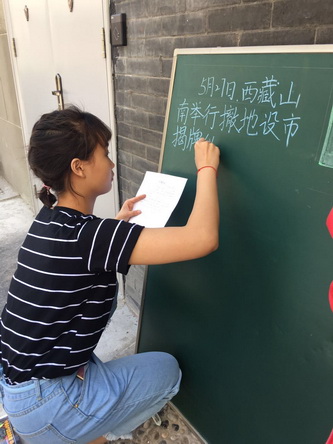 5月21日西藏山
南举行撤地设市
揭牌